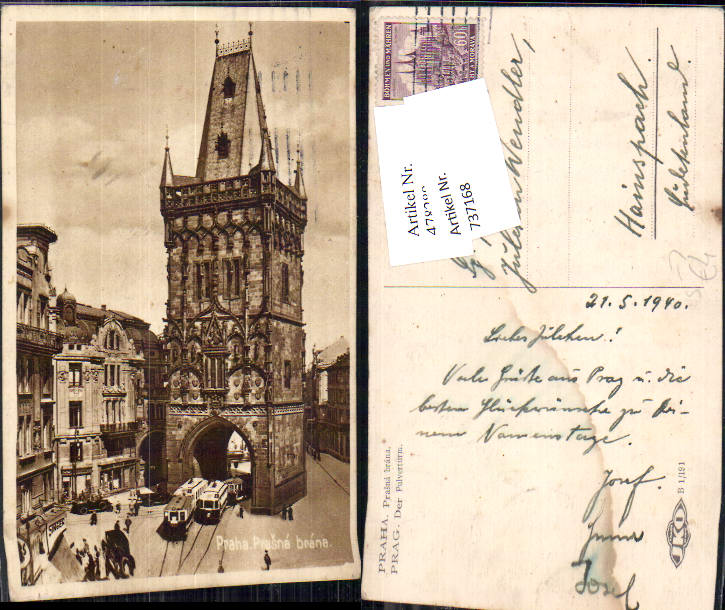 Praha. Prašná brána.
BÖHMEN UND MÄHREN
60
Artikel Nr.
Artikel Nr.
737168
Wendler,
Hainspach.
Sudetenland.
21.5.1940.
Liebes Julchen!
Viele Grüße aus Prag u. die
besten Glückwünsche zu Dei-
nem Namenstage.
Josef.
Josef
PRAHA. Prašná brána.
PRAG. Der Pulverturm.
B 1/191